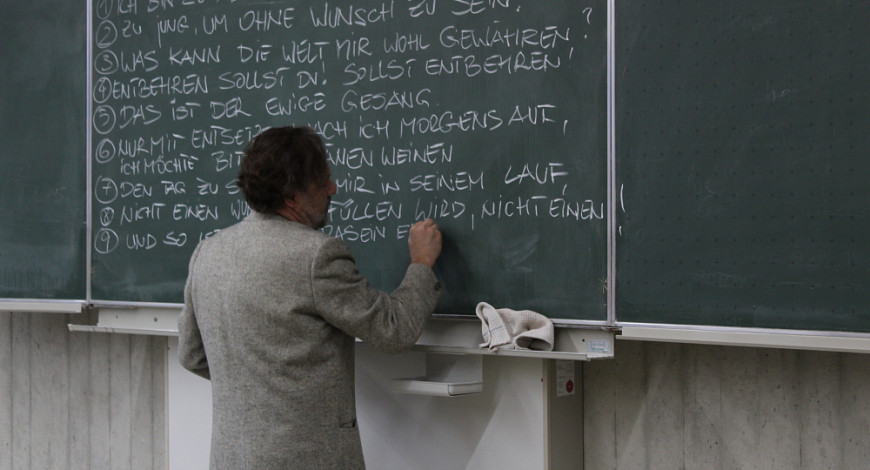 ① ICH BIN ZU
② ZU JUNG, UM OHNE WUNSCH ZU SEIN.
③ WAS KANN DIE WELT MIR WOHL GEWÄHREN?
④ ENTBEHREN SOLLST DU! SOLLST ENTBEHREN!
⑤ DAS IST DER EWIGE GESANG.
⑥ NUR MIT ICH MORGENS AUF,
ICH MÖCHTE WEINEN
⑦ DEN TAG ZU MIR IN SEINEM LAUF,
⑧ NICHT EINEN WIRD, NICHT EINEN!
⑨ UND SO DASEIN